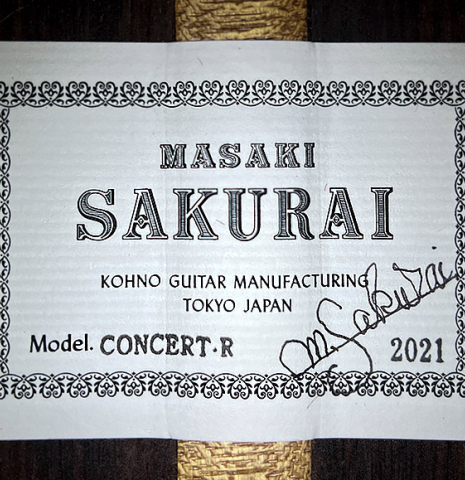 MASAKI
SAKURAI
KOHNO GUITAR MANUFACTURING
TOKYO JAPAN
M. Sakurai
Model. CONCERT·R 2021